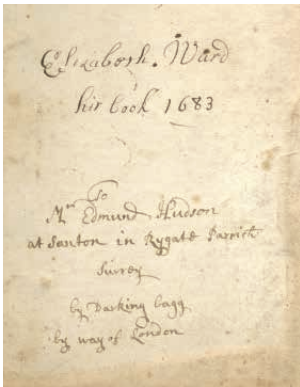 Elizabeth. Ward
hir book 1683
To
Mr Edmund Hudson
at Santon in Rygate Parrish
Surrey
by Darking bagg
by way of London